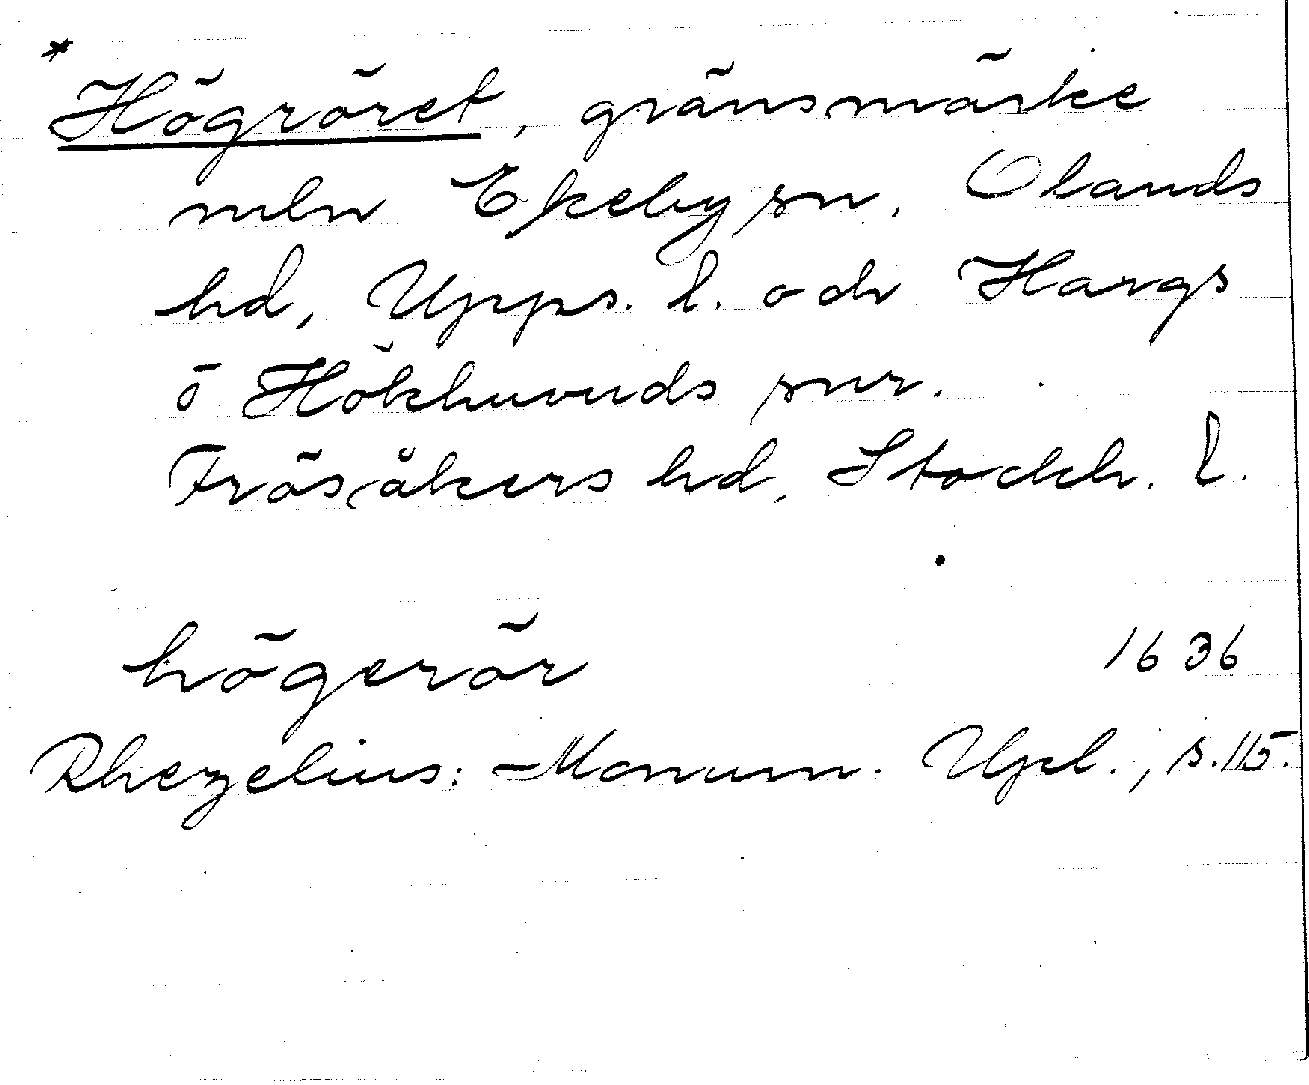 * Högröret, gränsmärke
mln Ekeby sn, Olands
hd, Upps. l. och Hargs
o Hökhuvuds snr.
Frösåkers hd, Stockh. l.
högerör 1636
Rhezelius: Monum. Upl., s. 115.